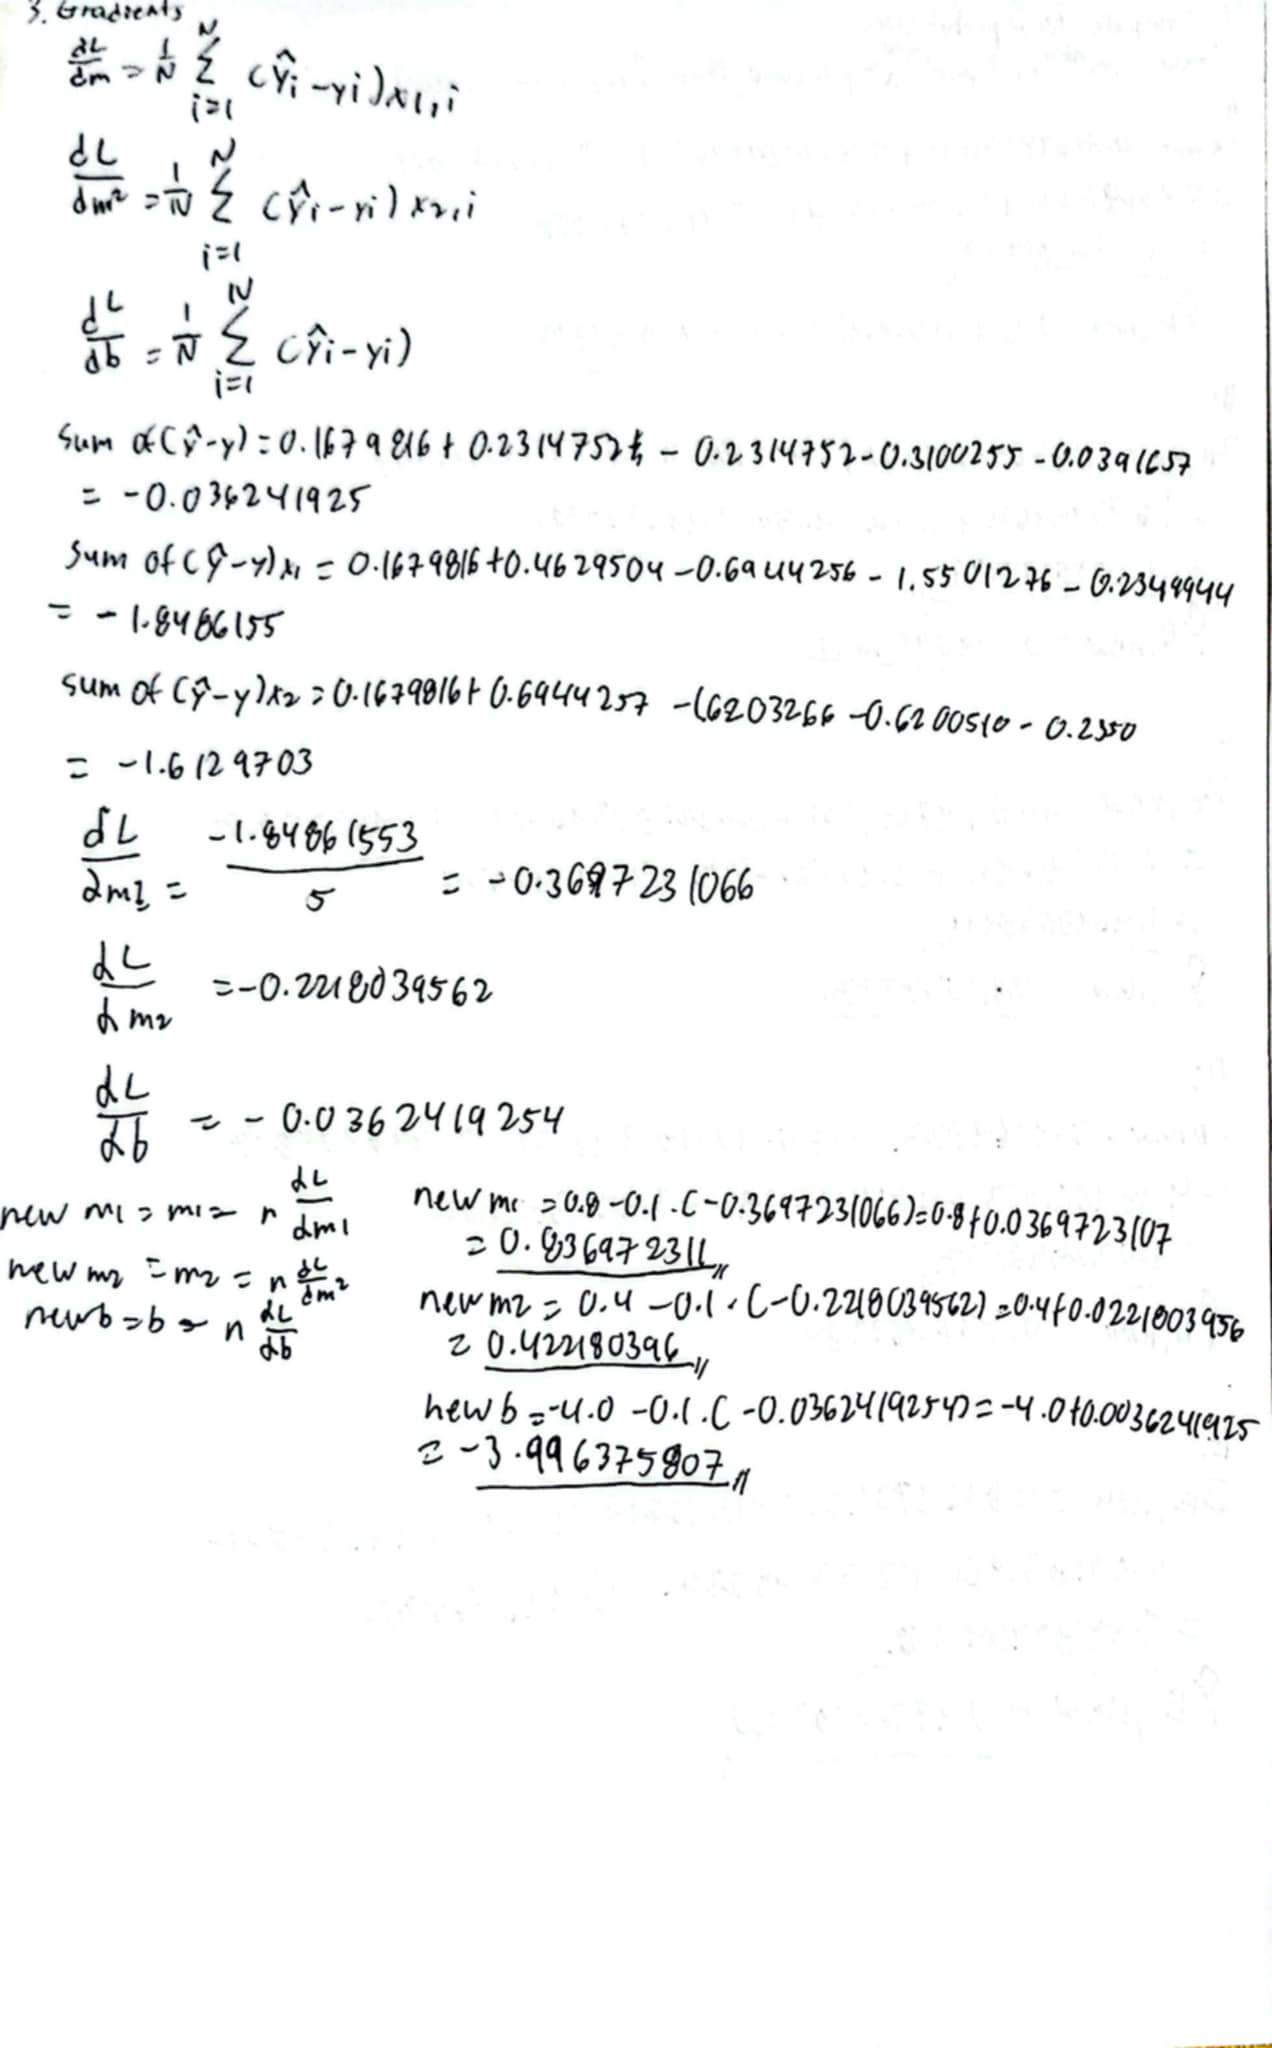 3. Gradients
dL/dm = 1/N N Σ i=1 (ŷi-yi)x1,i
dL/dm2 = 1/N N Σ i=1 (ŷi-yi)x2,i
dL/db = 1/N N Σ i=1 (ŷi-yi)
Sum of (ŷ-y) = 0.1679816 + 0.2314752 - 0.2314752 - 0.3100255 - 0.0391657
= -0.036241925
Sum of (ŷ-y)x1 = 0.1679816 + 0.4629504 - 0.6944256 - 1.5501276 - 0.2349944
= -1.8486155
Sum of (ŷ-y)x2 = 0.1679816 + 0.6944257 - 1.6203266 - 0.6200510 - 0.2350
= -1.6129703
dL/dm1 = -1.84861553/5 = -0.3697231066
dL/dm2 = -0.2218039562
dL/db = -0.0362419254
new m1 = m1 = n dL/dm1
new m2 = m2 = n dL/dm2
new b = b - n dL/db
new m1 = 0.8 - 0.1 . (-0.3697231066) = 0.8 + 0.0369723107
= 0.836972311 //
new m2 = 0.4 - 0.1 . (-0.2218039562) = 0.4 + 0.0221803956
= 0.422180396 //
new b = -4.0 - 0.1 . (-0.0362419254) = -4.0 + 0.0036241925
= -3.996375807 //